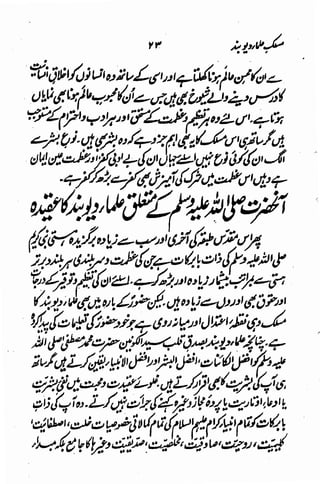 مسلک علماء دیوبند
۲۳
سے ان کا محسن عالم ہونا کھلتا ہے اور اسی کے ساتھ وہ انسانوں کو اخلاقِ انسانیت
کا درس دینے والے شیوخ بھی ہیں جس سے اُن کا محبوب عالم ہونا بھی نمایاں
ہوتا ہے۔ اس لئے وہ ہر تعظیم و عظمت کے مستحق اور ہر ادب و احترام کے مستوجب
ہیں مگر ساتھ ہی اس مسلک کا یہ بھی اہم جزو ہے کہ وہ بشر بھی ہیں۔ نوع بشر سے
الگ ان کی کوئی نوع نہیں اسلئے جہاں ان کی بے ادبی کفر اور عظمت عین ایمان
ہے وہیں اس عظمت میں شرک کی آمیزش بھی کفر سے بڑھ کر کفر ہے۔
آنحضرت صلی اللہ علیہ وسلم کے متعلق علماء دیوبند کا عقیدہ
پھر اس مقدس طبقہ کی آخری اور سب سے زیادہ برگزیدہ ہستی نبی کریم
صلی اللہ علیہ وسلم کی ذات بابرکات ہے جن کی عظمت و سر بلندی ہر بلند و برتر
ہستی سے بمراتب بیشمار زیادہ اور بڑھ کر ہے۔ اسلئے ان کی تعظیم و توقیر کے درجات
اور حقوق بھی اوروں سے زیادہ ہیں۔ لیکن حضورؐ کے بارہ میں بھی علماء دیوبند کا
مسلک وہی نقطۂ اعتدال اور میانہ روی ہے جو خود حضورؐ کی تعلیمات کی پیدا کردہ
ہے۔ چنانچہ علماء دیوبند بصدق قلب سید الکونین حضرت محمد مصطفیٰ صلی اللہ
علیہ وسلم کو افضل الکائنات، افضل البشر اور افضل الانبیاء یقین کرتے ہیں مگر ساتھ
ہی آپ کی بشریت کا بھی اقرار کرتے ہیں۔ غلوئے عقیدت و محبت میں نفی بشریت
یا ادعاء اوتاریت یا پردہ مجاز وغیرہ کہنے کی جرات نہیں کرتے۔ وہ آپ کی ذات
بابرکات کو تمام انبیاء کرام علیہم السلام کی تمام کمالاتی خصوصیات خلت، اصطفائیت،
کلیمیت، روحیت، صادقیت، مخلصیت، صدیقیت وغیرہا کا جامع بلکہ مبداء